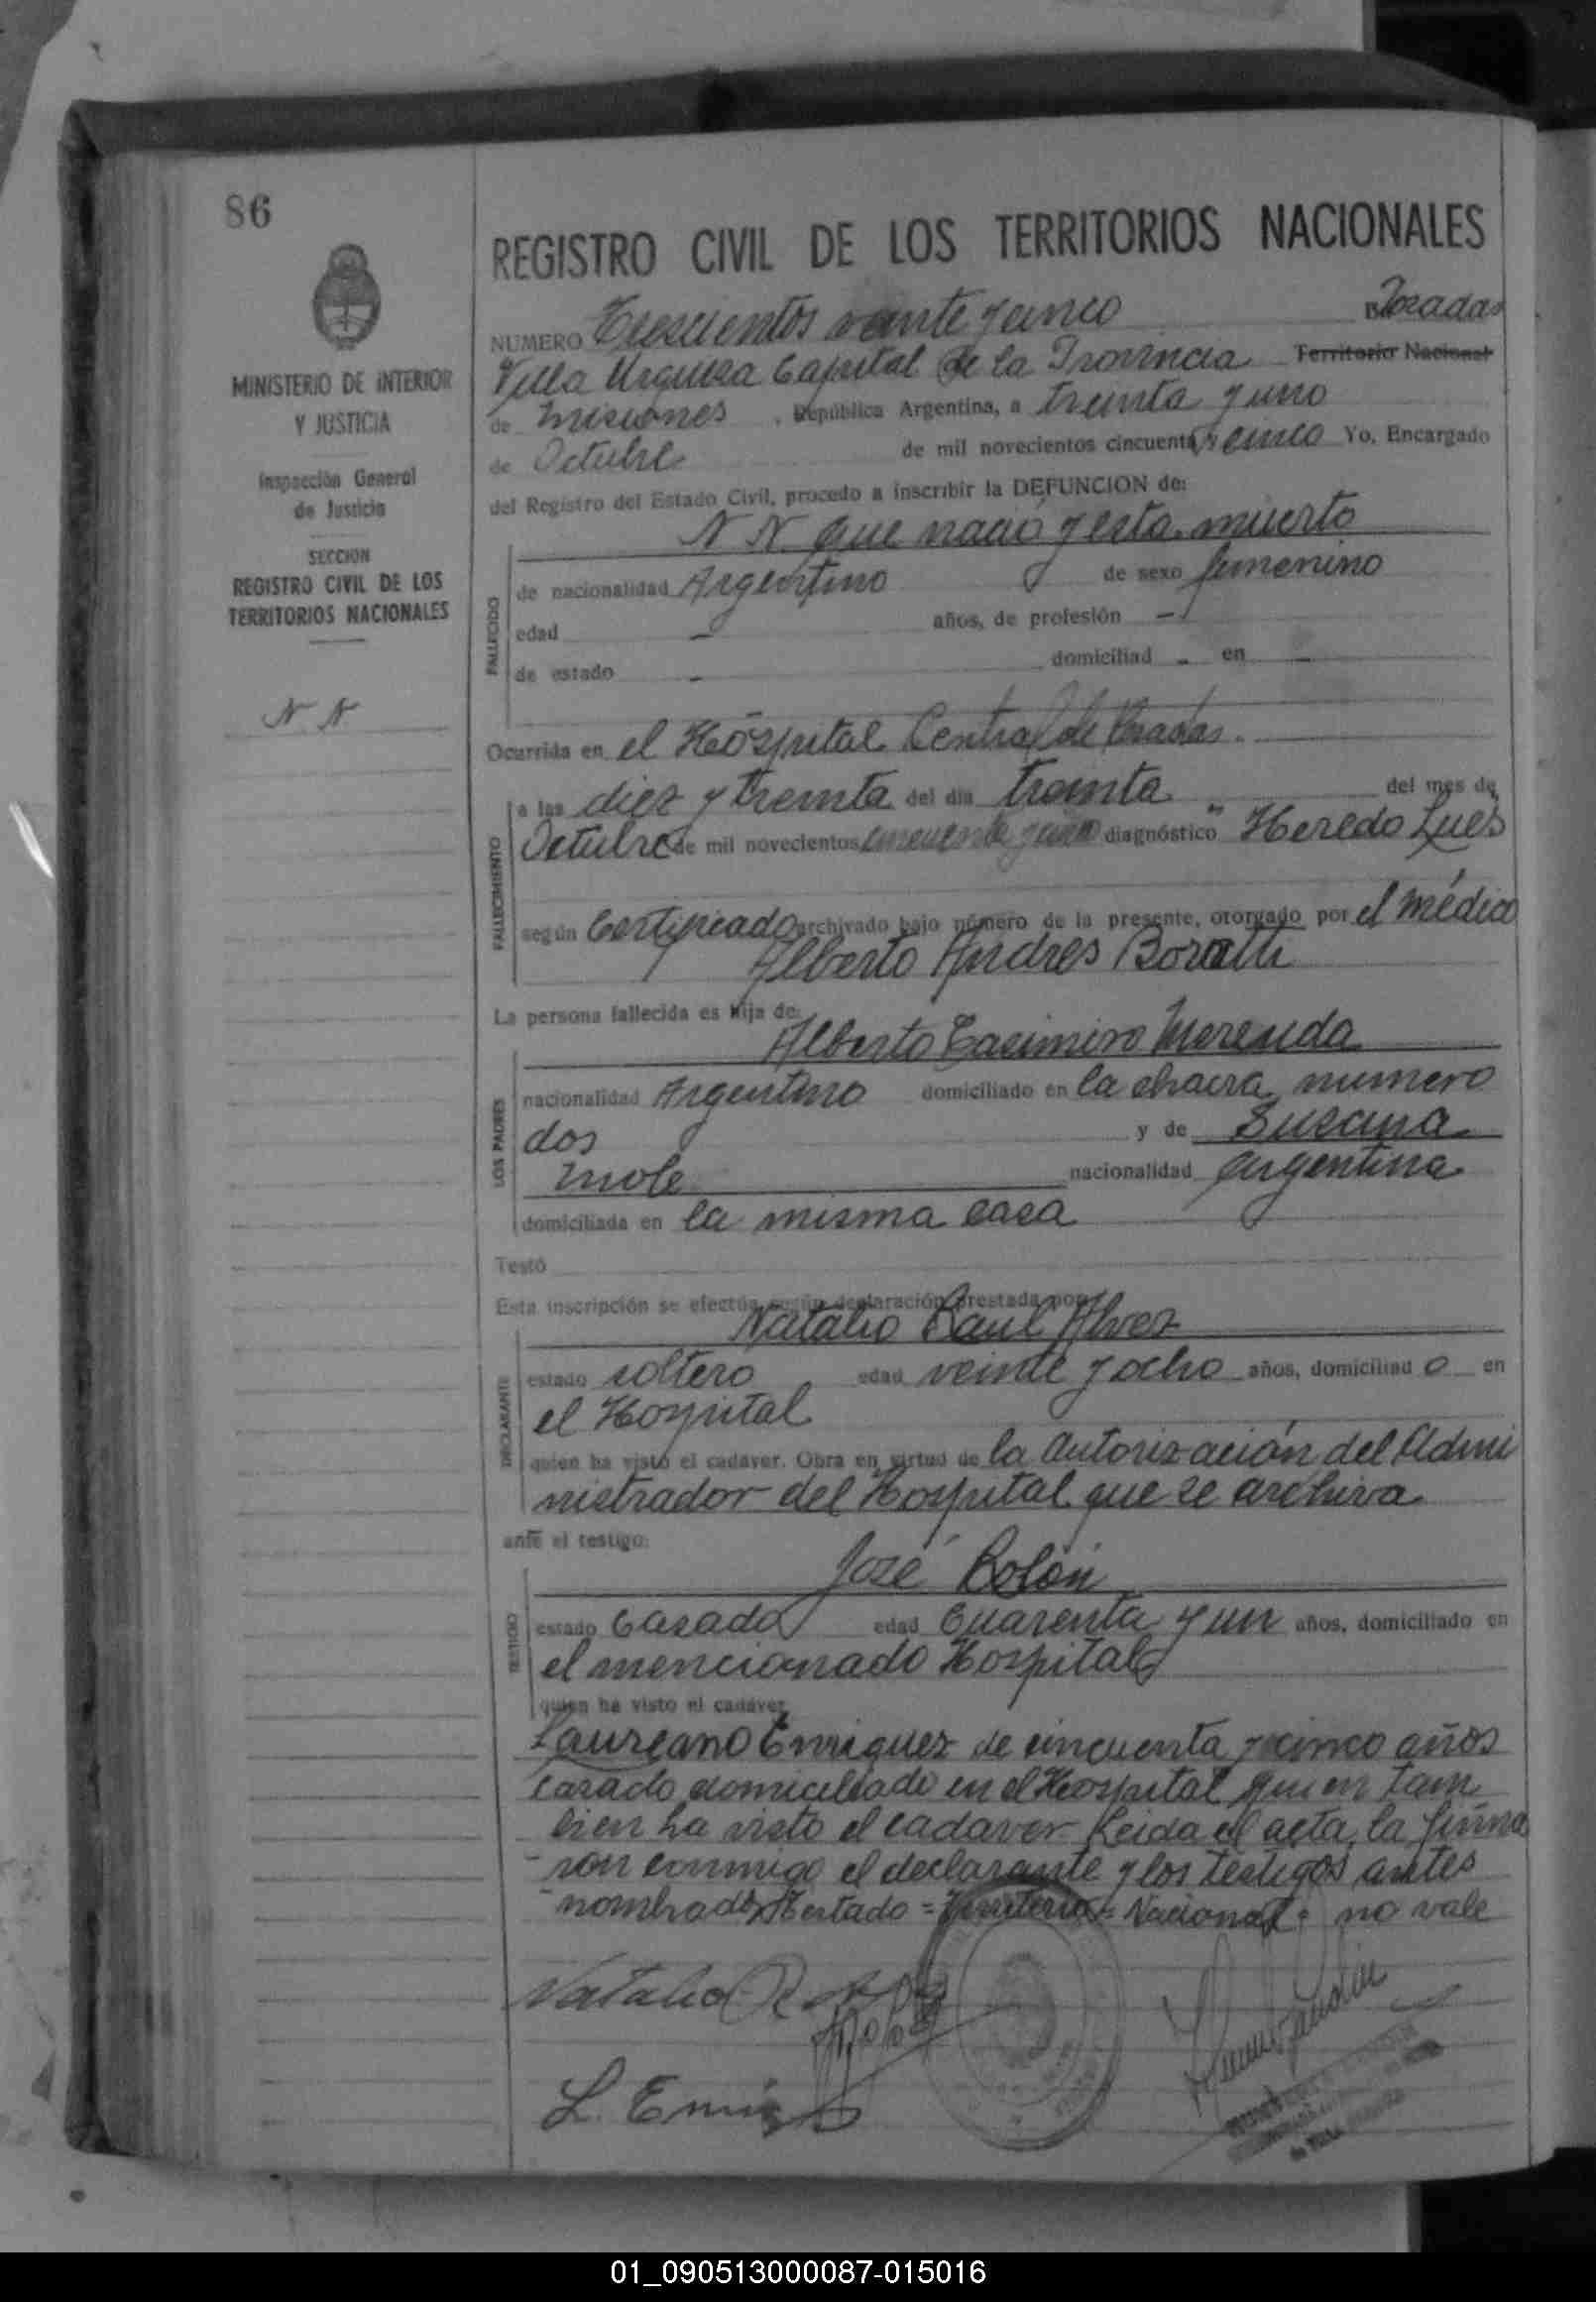 86
REGISTRO CIVIL DE LOS TERRITORIOS NACIONALES
MINISTERIO DE INTERIOR
Y JUSTICIA
Inspección General
de Justicia
SECCION
REGISTRO CIVIL DE LOS
TERRITORIOS NACIONALES
N N
NUMERO Trescientos veinte y cinco Posadas
Villa Urquiza Capital de la Provincia Territorio Nacional
de Misiones, República Argentina, a treinta y uno
de Octubre de mil novecientos cincuenta y cinco Yo, Encargado
del Registro del Estado Civil, procedo a inscribir la DEFUNCION de:
N N que nació y esta muerto
FALLECIDO
de nacionalidad Argentino de sexo femenino
edad - años, de profesión -
de estado - domiciliad - en -
Ocurrida en el Hospital Central de Posadas.
FALLECIMIENTO
a las diez y treinta del día treinta del mes de
Octubre de mil novecientos cincuenta y cinco diagnóstico "Heredo Lues
según Certificado archivado bajo número de la presente, otorgado por el médico
Alberto Andres Boratti
La persona fallecida es hija de:
Alberto Casimiro Merenda
LOS PADRES
nacionalidad Argentino domiciliado en la chacra numero
dos y de Susana
Mole nacionalidad argentina
domiciliada en la misma casa
Testó
Esta inscripción se efectúa según declaración prestada por:
Natalio Raul Alvez
DECLARANTE
estado soltero edad veinte y ocho años, domiciliad o en
el Hospital
quien ha visto el cadaver. Obra en virtud de la autorización del Admi
nistrador del Hospital que se archiva
ante el testigo:
José Bolón
TESTIGO
estado Casado edad Cuarenta y un años, domiciliado en
el mencionado Hospital
quien ha visto el cadaver
Laureano Enriquez de cincuenta y cinco años
casado domiciliado en el Hospital quien tam
bien ha visto el cadaver. Leida el acta, la firma
ron conmigo el declarante y los testigos antes
nombrados Testado = Territorio = Nacional = no vale
Natalio R
L. Enriq
01_090513000087-015016